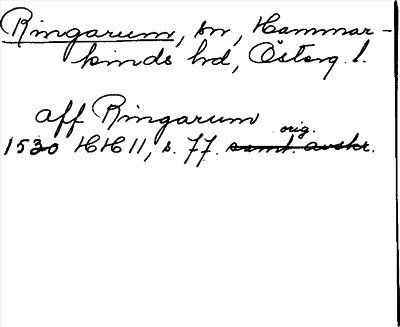 Ringarum, sn, Hammar-
kinds hd, Österg. l.
aff Ringarum
orig.
1530 HH 11, s. 77. samt. avskr.